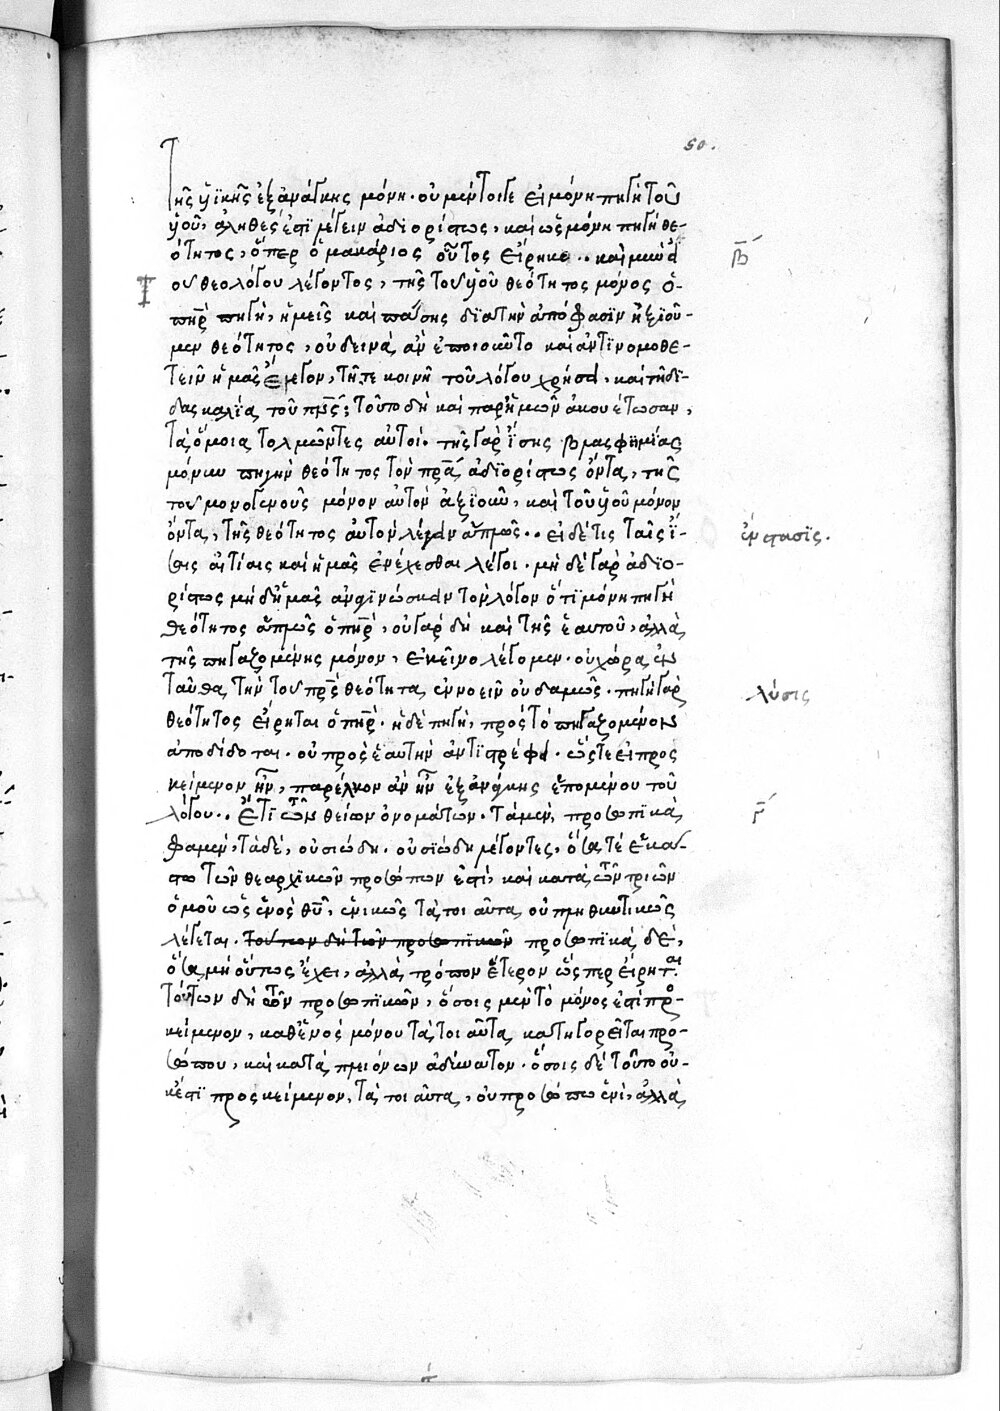 50.
τῆς ὑϊκῆς ἐξανάγκης μόνη· οὐ μέντοιγε εἰ μόνη πηγὴ τοῦ
ὑοῦ, ἀληθές ἐστι λέγειν ἀδιορίστως, καὶ ὡς μόνη πηγὴ θε-
ότητος, ὅπερ ὁ μακάριος οὗτος εἴρηκε·· καὶ
β̅
ου θεολόγου λέγοντος, τῆς τοῦ ὑοῦ θεότητος μόνος ὁ-
πηρ̅ πηγὴ, ἡμεῖς καὶ πάσης διατὴν ἀπόφασιν ἠξιοῦ-
μεν θεότητος, οὐ δεινὰ ἂν ἐποιοῦντο καὶ ἀντινομοθε-
τεῖν ἡμᾶς ἔλεγον, τῆτε κοινῆ τοῦ λόγου χρήσει, καὶ τῆ δι-
δασκαλία τοῦ πρς̅; τοῦτο δὴ καὶ παρ' ἡμῶν ἀκουέτωσαν,
τὰ ὅμοια τολμῶντες αὐτοί. τῆς γὰρ ἴσης βλασφημίας
μόνων πηγὴν θεότητος τὸν πρα̅ ἀδιορίστως ὄντα, τῆς
τοῦ μονογενοῦς μόνον αὐτὸν ἀξιοῦν, καὶ τοῦ ὑοῦ μόνον
ὄντα, τῆς θεότητος αὐτὸν λέγειν ἁπλῶς·· εἰ δέ τις ταῖς ἴ-
ἔνστασις.
σαις αἰτίαις καὶ ἡμᾶς ἐνέχεσθαι λέγοι· μὴ δὲ γὰρ ἀδιο-
ρίστως μὴ δ' ἡμᾶς ἀναγινώσκειν τὸν λόγον ὅτι μόνη πηγὴ
θεότητος ἁπλῶς ὁ πηρ̅, οὐ γὰρ δὴ καὶ τῆς ἑαυτοῦ, ἀλλὰ
τῆς πηγαζομένης μόνον, ἐκεῖνο λέγομεν· οὐ χώρα ἐν
ταῦθα τὴν τοῦ πρς̅ θεότητα ἐννοεῖν οὐδαμῶς· πηγὴ γὰρ
λύσις
θεότητος εἴρηται ὁ πηρ̅· ἡ δὲ πηγὴ, πρὸς τὸ πηγαζόμενον
ἀποδίδοται· οὐ πρὸς ἑαυτὴν ἀντιστρέφει· ὥστε εἰ προς
κείμενον ἦν, παρέλκον ἂν ἦν ἐξανάγκης ἑπομένου τοῦ
λόγου·· Ἔτι τῶν θείων ὀνομάτων· τὰ μὲν, προσωπικὰ
γ̅
φαμὲν, τὰ δὲ, οὐσιώδη· οὐσιώδη λέγοντες, ὅσα τὲ ἑκά-
στω τῶν θεαρχικῶν προσώπων ἐστὶ, καὶ κατὰ τῶν τριῶν
ὁμοῦ ὡς ἑνὸς θυ̅, ἑνικῶς τά τοι αὖτα οὐ πληθυντικῶς
λέγεται. τούτων δὴ τῶν προσωπικῶν προσωπικὰ δὲ,
ὅσα μὴ οὕτως ἔχει, ἀλλὰ τρόπον ἕτερον ὥσπερ εἴρηται·
τούτων δὴ τῶν προσωπικῶν, ὅσοις μὲν τὸ μόνος ἐστὶ προσ-
κείμενον, καθ' ἑνὸς μόνου τὰ τοι αῦτα κατηγορεῖται προ-
σώπου, καὶ κατὰ πλειόνων ἀδύνατον· ὅσοις δὲ τοῦτο οὐ-
κέστι προσκείμενον, τὰ τοι αῦτα, οὐ προσώπω ἑνὶ, ἀλλὰ